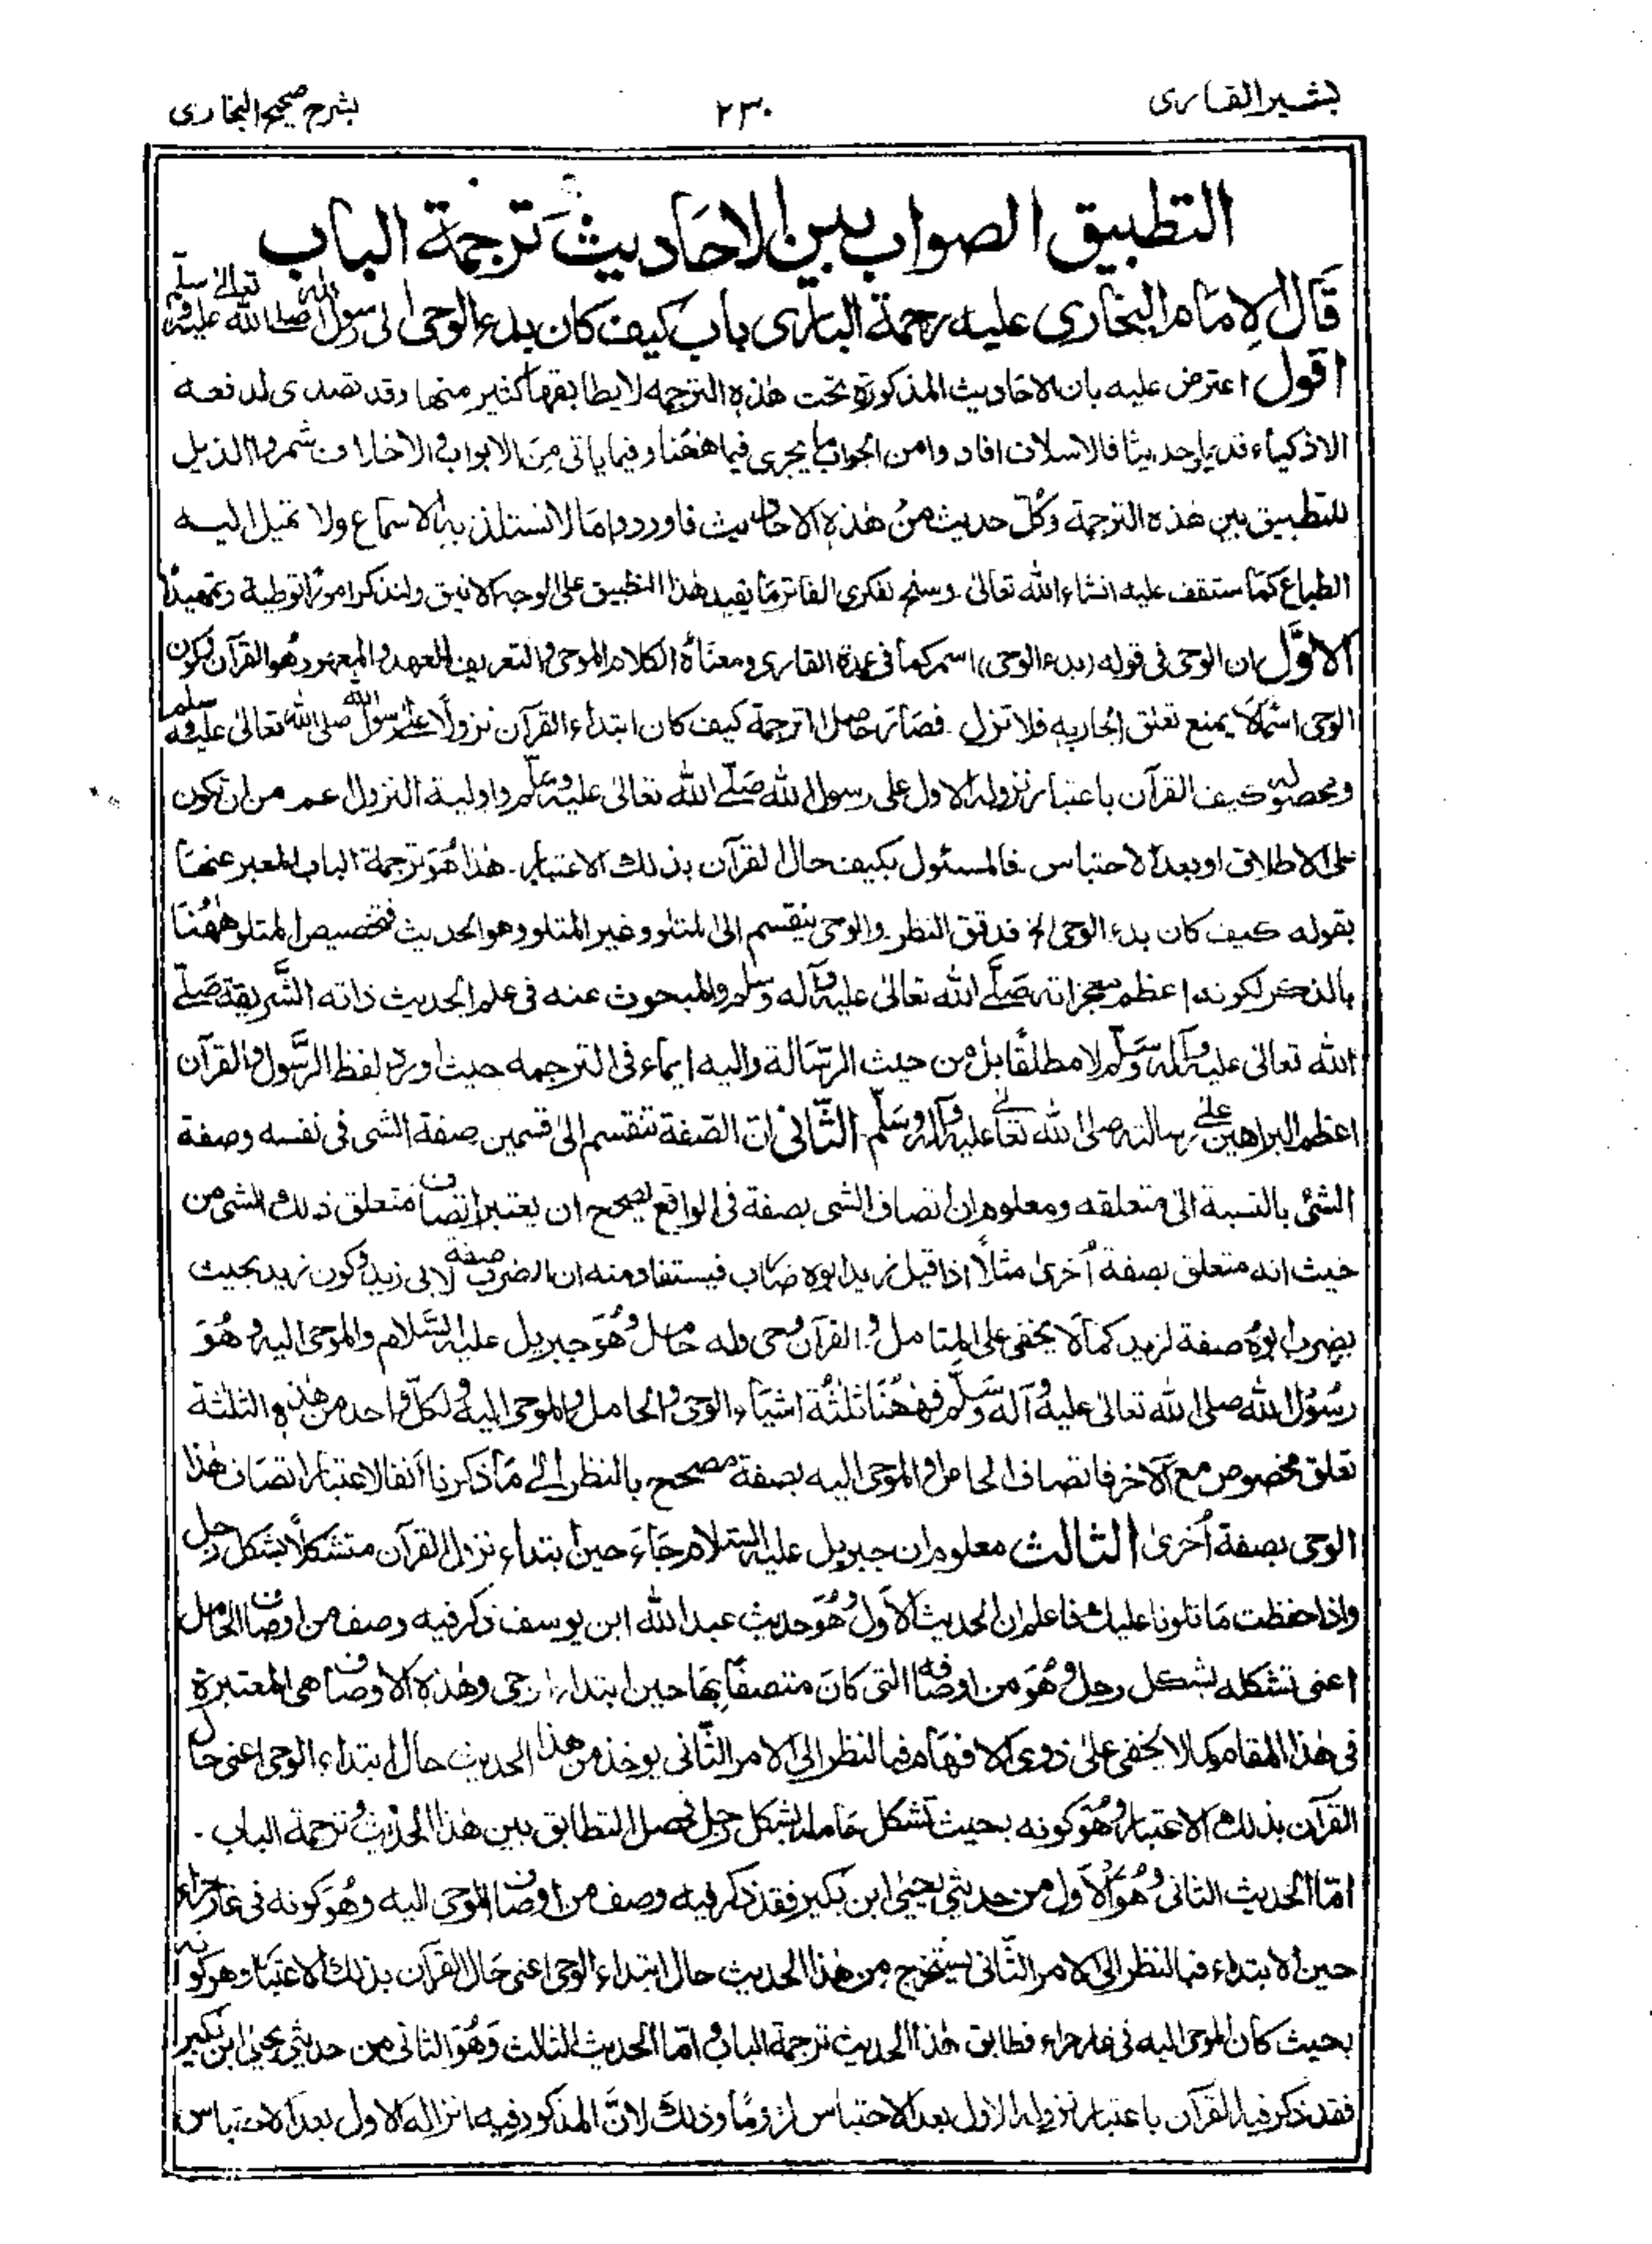 بشير القارى
٢٣٠
بشرح صحيح البخارى
التطبيق الصواب بين الاحاديث ترجمة الباب
قال الامام البخارى عليه رحمة البارى باب كيف كان بدء الوحى الى رسول الله صلى الله تعالى عليه وسلم
اقول اعترض عليه بان الاحاديث المذكورة تحت هذه الترجمه لا يطابقها كثير منها وقد تصدى لدفعه
الاذكياء قديما وحديثا فالاسلاف افادوا من الجواب ما يجرى فيما ههنا وفيما ياتى من الابواب والاخلاف شمروا الذيل
للتطبيق بين هذه الترجمة وكل حديث من هذه الاحاديث فاوردوا ما لا تستلذ به الاسماع ولا تميل اليه
الطباع كما ستقف عليه انشاء الله تعالى وسنح لفكرى الفاتر ما يفيد هذا التطبيق على الوجه الانيق ولنذكر امورا توطية وتمهيدا
الاول ان الوحى فى قوله (بدء الوحى) اسم كما فى عمدة القارى ومعناه الكلام الموحى والتعريف للعهد والمعهود هو القرآن وكون
الوحى اسما لا يمنع تعلق الجار به فلا تزل. فصار حاصل الترجمة كيف كان ابتداء القرآن نزولا على رسول الله صلى الله تعالى عليه وسلم
ومحصوله كيف القرآن باعتبار نزوله الاول على رسول الله صلى الله تعالى عليه وسلم واولية النزول اعم من ان تكون
على الاطلاق او بعد الاحتباس. فالمسئول بكيف حال القرآن بذلك الاعتبار. هذا هو ترجمة الباب المعبر عنها
بقوله كيف كان بدء الوحى الخ فدقق النظر. والوحى ينقسم الى المتلو وغير المتلو وهو الحديث فتخصيص المتلو ههنا
بالذكر لكونه اعظم معجزاته صلى الله تعالى عليه وآله وسلم والمبحوث عنه فى علم الحديث ذاته الشريفة صلى
الله تعالى عليه وآله وسلم لا مطلقا بل من حيث الرسالة واليه ايماء فى الترجمه حيث اورد لفظ الرسول والقرآن
اعظم البراهين على رسالته صلى الله تعالى عليه وآله وسلم. الثانى ان الصفة تنقسم الى قسمين صفة الشى فى نفسه وصفة
الشئ بالنسبة الى متعلقه ومعلوم ان اتصاف الشى بصفة فى الواقع يصحح ان يعتبر اتصاف متعلق ذلك الشى من
حيث انه متعلق بصفة اخرى مثلا اذا قيل زيد ابوه ضارب فيستفاد منه ان الضرب صفة لابى زيد وكون زيد بحيث
يضرب ابوه صفة لزيد كما لا يخفى على المتامل والقرآن وحى وله حامل وهو جبريل عليه السلام والموحى اليه وهو
رسول الله صلى الله تعالى عليه وآله وسلم فههنا ثلثة اشياء الوحى والحامل والموحى اليه ولكل واحد من هذه الثلثة
تعلق مخصوص مع الآخر فاتصاف الحامل والموحى اليه بصفة مصحح بالنظر الى ما ذكرنا آنفا لاعتبار اتصاف هذا
الوحى بصفة اخرى الثالث معلوم ان جبريل عليه السلام جاء حين ابتداء نزول القرآن متشكلا بشكل رجل
واذا حفظت ما تلونا عليك فاعلم ان الحديث الاول وهو حديث عبد الله ابن يوسف ذكر فيه وصف من اوصاف الحامل
اعنى تشكله بشكل رجل وهو من اوصافه التى كان متصفا بها حين ابتداء الوحى وهذه الاوصاف هى المعتبرة
فى هذا المقام كما لا يخفى على ذوى الافهام فبالنظر الى الامر الثانى يوخذ من هذا الحديث حال ابتداء الوحى اعنى حال
القرآن بذلك الاعتبار وهو كونه بحيث تشكل حامله بشكل رجل فحصل التطابق بين هذا الحديث وترجمة الباب.
اما الحديث الثانى وهو الاول من حديثى يحيى ابن بكير فقد ذكر فيه وصف من اوصاف الموحى اليه وهو كونه فى غار حراء
حين الابتداء فبالنظر الى الامر الثانى يستخرج من هذا الحديث حال ابتداء الوحى اعنى حال القرآن بذلك الاعتبار وهو كونه
بحيث كان الموحى اليه فى غار حراء فطابق هذا الحديث ترجمة الباب واما الحديث الثالث وهو الثانى من حديثى يحيى ابن بكير
فقد ذكر فيه القرآن باعتبار نزوله الاول بعد الاحتباس لزوما وذلك لان المذكور فيه انزاله الاول بعد الاحتباس